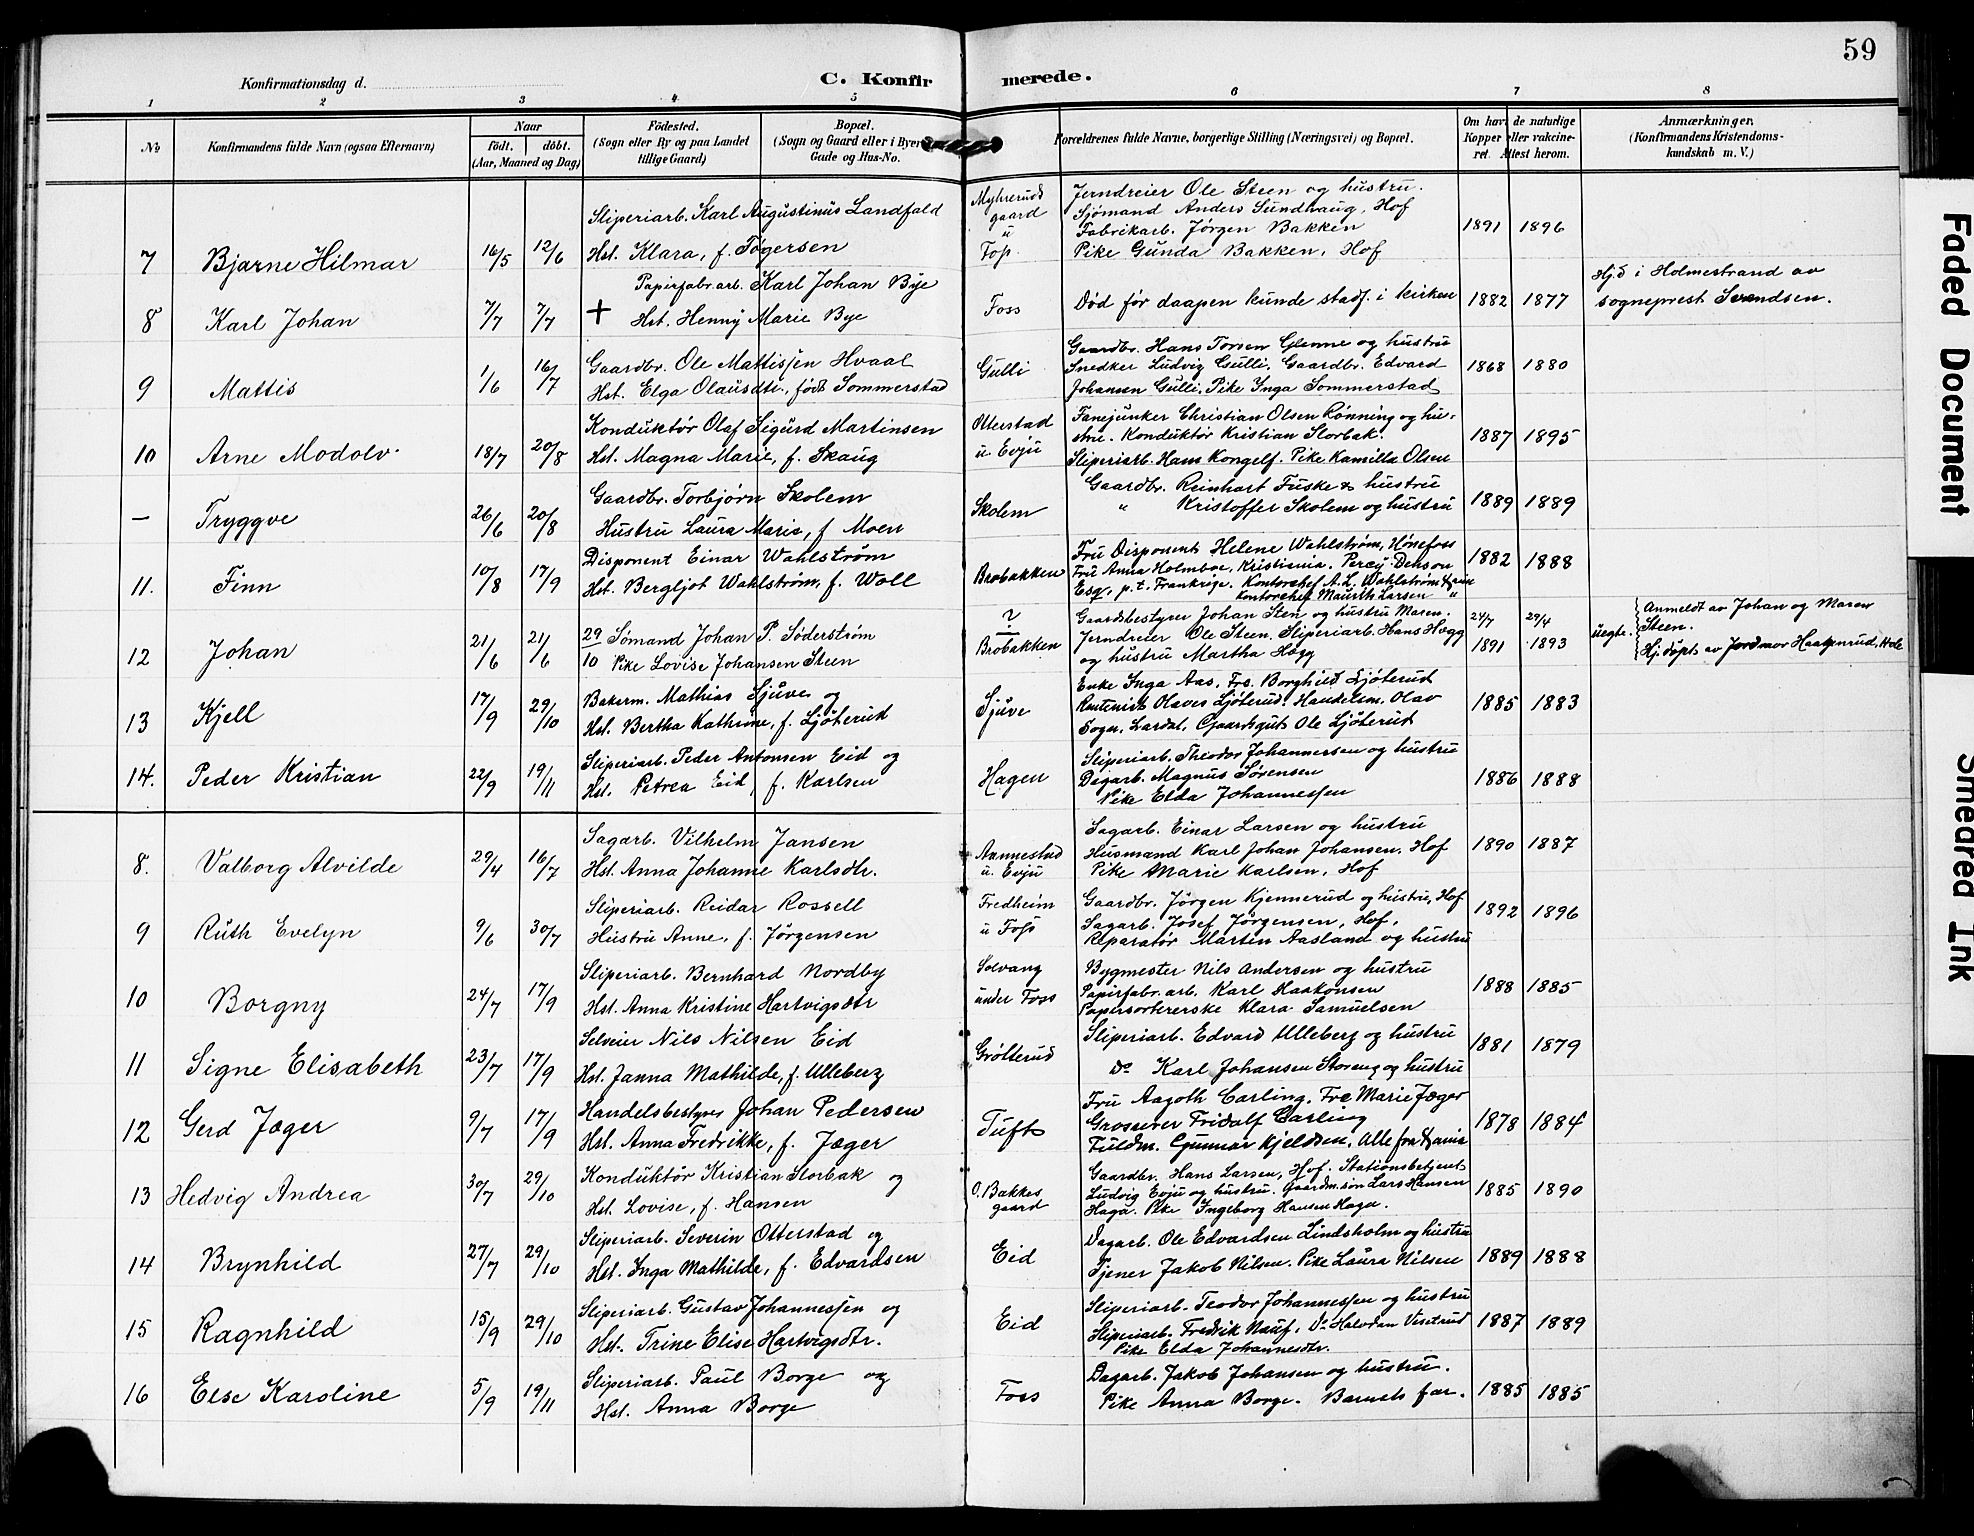 59
Konfirmationsdag d.
C. Konfirmerede.
1 2 3 4 5 6 7 8
No
Konfirmandens fulde Navn (ogsaa Efternavn)
Naar
født. døbt.
(Aar, Maaned og Dag)
Fødested.
(Sogn eller By og paa Landet
tillige Gaard)
Bopæl.
(Sogn og Gaard eller i Byer
Gade og Hus-No.
Forældrenes fulde Navne, borgerlige Stilling (Næringsvei) og Bopæl.
Om havt de naturlige
Kopper eller vakcine-
ret. Attest herom.
Anmærkninger.
(Konfirmandens Kristendoms-
kundskab m. V.)
7 Bjarne Hilmar 16/5 12/6
Sliperiarb. Karl Augustinus Landfald
Hst. Klara, f. Tøgersen
Myhreruds
gaard
u
Foss
Jerndreier Ole Steen og hustru.
Sjømand Anders Sundhaug, Hof
Fabrikarb. Jørgen Bakken
Pike Gunda Bakken, Hof
1891 1896
8 Karl Johan 7/7 7/7
Papirfabr.arb. Karl Johan Bye
+ Hst. Henny Marie Bye
Foss
Død før daapen kunde stadf. i kirken
1882 1877
Hj.d i Holmestrand av
sogneprest Svendsen.
9 Mattis 1/6 16/7
Gaardbr. Ole Mattissen Hvaal
Hst. Elga Olausdtr., født Sommerstad
Gulli
Gaardbr. Hans Torsen Glenne og hustru
Snedker Ludvig Gulli. Gaardbr. Edvard
Johansen Gulli. Pike Inga Sommerstad
1868 1880
10 Arne Modolv 18/7 20/8
Konduktør Olaf Sigurd Martinsen
Hst. Magna Marie, f. Skaug
Otterstad
u. Evju
Fanejunker Christian Olsen Rønning og hu-
stru. Konduktør Kristian Storbak.
Sliperiarb. Hans Kongelf. Pike Kamilla Olsen
1887 1895
— Tryggve 26/6 20/8
Gaardbr. Torbjørn Skolem
Hustru Laura Marie, f Moen
Skolem
Gaardbr. Reinhart Fuske & hustru
" Kristoffer Skolem og hustru
1889 1889
11. Finn 10/8 17/9
Disponent Einar Wahlstrøm
Hst. Bergljot Wahlstrøm, f. Woll
Brobakken
Fru Disponent Helene Wahlstrøm, Hønefoss
Fru Anna Holmboe, Kristiania. Percy
Esq, p.t. Frankrige. Kontorchef A.L. Wahlstrøm
Kontorchef Larsen "
1882 1888
12 Johan 21/6 21/6
29/10 Sømand Johan P. Søderstrøm
Pike Lovise Johansen Steen
?
Brobakken
Gaardsbestyrer Johan Sten og hustru Maren.
Jerndreier Ole Steen. Sliperiarb. Hans Hægg
og hustru Martha Hægg
24/7 29/4
1891 1893
uegte.
Anmeldt av Johan og Maren
Steen.
Hj. døpt av Jordmor Haakenrud, Hole
13 Kjell 17/9 29/10
Bakerm. Mathias Sjuve og
Hst. Bertha Kathrine, f. Ljøterud
Sjuve
Enke Inga Aas, Frs. Borghild Ljøterud
Olaves Ljøterud. Handelsm. Olav
Sogn, Lardal. Gaardsgut Ole Ljøterud
1885 1883
14. Peder Kristian 22/9 19/11
Sliperiarb. Peder Antonsen Eid og
Hst. Petrea Eid, f. Karlsen
Hagen
Sliperiarb. Theodor Johannessen og hustru
Dagarb. Magnus Sørensen
Pike Elda Johannessen
1886 1888
8. Valborg Alvilde 29/4 16/7
Sagarb. Vilhelm Jansen
Hst. Anna Johanne Karlsdtr.
Annestad
u. Evju
Sagarb. Einar Larsen og hustru
Husmand Karl Johan Johansen. Hof
Pike Marie Karlsen, Hof
1890 1887
9 Ruth Evelyn 9/6 30/7
Sliperiarb. Reidar Rossell
Hustru Anne, f. Jørgensen
Fredheim
u Foss
Gaardbr. Jørgen Kjennerud og hustru, Hof
Sagarb. Josef Jørgensen, Hof.
Reparatør Marten Aasland og hustru
1892 1896
10 Borgny 24/7 17/9
Sliperiarb. Bernhard Nordby
Hst. Anna Kristine Hartvigsdtr
Solvang
under Foss
Bygmester Nils Andersen og hustru
Papirfabr. arb. Karl Haakonsen
Papersortererske Klara Samuelsen
1888 1885
11 Signe Elisabeth 23/7 17/9
Selveier Nils Nilsen Eid
Hst. Janna Mathilde, f. Ulleberg
Grøtterud
Sliperiarb. Edvard Ulleberg og hustru
Do Karl Johansen Storeng og hustru
1881 1879
12 Gerd Jæger 9/7 17/9
Handelsbestyrer Johan Pedersen
Hst. Anna Fredrikke, f. Jæger
Tufte
Fru Aagoth Carling, Frø Marie Jæger
Grosserer Fridolf Carling
Fuldm. Gunnar Kjeldsen. Alle fra
1878 1884
13 Hedvig Andrea 30/7 29/10
Konduktør Kristian Storbak og
Hst. Lovise, f. Hansen
O. Bakkes
gaard
Gaardbr. Hans Larsen, Hof. Stationsbetjent
Ludvig Evju og hustru. Gaardm.søn Lars Hansen
Haga. Pike Ingeborg Hansen Haga.
1885 1890
14 Brynhild 27/7 29/10
Sliperiarb. Severin Otterstad og
Hst. Inga Mathilde, f. Edvardsen
Eid
Dagarb. Ole Edvardsen Lindsholm og hustru
Tjener Jakob Nilsen. Pike Laura Nilsen
1889 1888
15 Ragnhild 15/9 29/10
Sliperiarb. Gustav Johannessen og
Hst. Trine Elise Hartvigsdtr.
Eid
Sliperiarb. Teodor Johannessen og hustru
Sliperiarb. Fredrik Nauf, Do Halvdan Visetrud
Pike Elda Johannesdtr.
1887 1889
16 Else Karoline 5/9 19/11
Sliperiarb. Paul Borge og
Hst. Anna Borge
Foss
Dagarb. Jakob Johansen og hustru.
Pike Anna Borge. Barnets far.
1885 1885
Faded Document
Smeared Ink